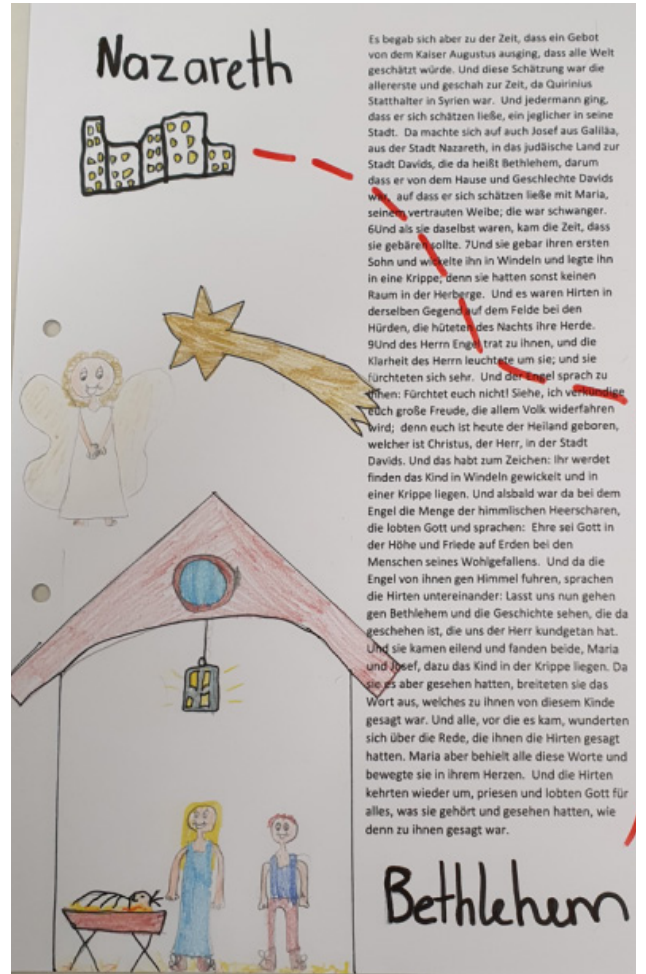 Nazareth
Es begab sich aber zu der Zeit, dass ein Gebot
von dem Kaiser Augustus ausging, dass alle Welt
geschätzt würde. Und diese Schätzung war die
allererste und geschah zur Zeit, da Quirinius
Statthalter in Syrien war. Und jedermann ging,
dass er sich schätzen ließe, ein jeglicher in seine
Stadt. Da machte sich auf auch Josef aus Galiläa,
aus der Stadt Nazareth, in das judäische Land zur
Stadt Davids, die da heißt Bethlehem, darum
dass er von dem Hause und Geschlechte Davids
war, auf dass er sich schätzen ließe mit Maria,
seinem vertrauten Weibe; die war schwanger.
6Und als sie daselbst waren, kam die Zeit, dass
sie gebären sollte. 7Und sie gebar ihren ersten
Sohn und wickelte ihn in Windeln und legte ihn
in eine Krippe; denn sie hatten sonst keinen
Raum in der Herberge. Und es waren Hirten in
derselben Gegend auf dem Felde bei den
Hürden, die hüteten des Nachts ihre Herde.
9Und des Herrn Engel trat zu ihnen, und die
Klarheit des Herrn leuchtete um sie; und sie
fürchteten sich sehr. Und der Engel sprach zu
ihnen: Fürchtet euch nicht! Siehe, ich verkündige
euch große Freude, die allem Volk widerfahren
wird; denn euch ist heute der Heiland geboren,
welcher ist Christus, der Herr, in der Stadt
Davids. Und das habt zum Zeichen: Ihr werdet
finden das Kind in Windeln gewickelt und in
einer Krippe liegen. Und alsbald war da bei dem
Engel die Menge der himmlischen Heerscharen,
die lobten Gott und sprachen: Ehre sei Gott in
der Höhe und Friede auf Erden bei den
Menschen seines Wohlgefallens. Und da die
Engel von ihnen gen Himmel fuhren, sprachen
die Hirten untereinander: Lasst uns nun gehen
gen Bethlehem und die Geschichte sehen, die da
geschehen ist, die uns der Herr kundgetan hat.
Und sie kamen eilend und fanden beide, Maria
und Josef, dazu das Kind in der Krippe liegen. Da
sie es aber gesehen hatten, breiteten sie das
Wort aus, welches zu ihnen von diesem Kinde
gesagt war. Und alle, vor die es kam, wunderten
sich über die Rede, die ihnen die Hirten gesagt
hatten. Maria aber behielt alle diese Worte und
bewegte sie in ihrem Herzen. Und die Hirten
kehrten wieder um, priesen und lobten Gott für
alles, was sie gehört und gesehen hatten, wie
denn zu ihnen gesagt war.
Bethlehem